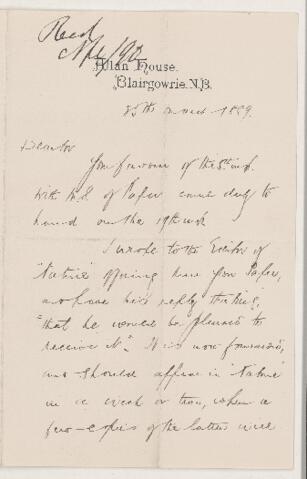 Recd
Allan House.
Blairgowrie. N.B.
25th 1889.
Dear Sir
Your favour of the 5th inst
with M.S. of Paper came duly to
hand on the 19th inst
I wrote to the Editor of
"Nature" offering him your Paper,
and have his reply
"that he would be pleased to
receive it". It is now forwarded,
and should appear in "Nature"
in a week or two, when a
few copies of the latter will